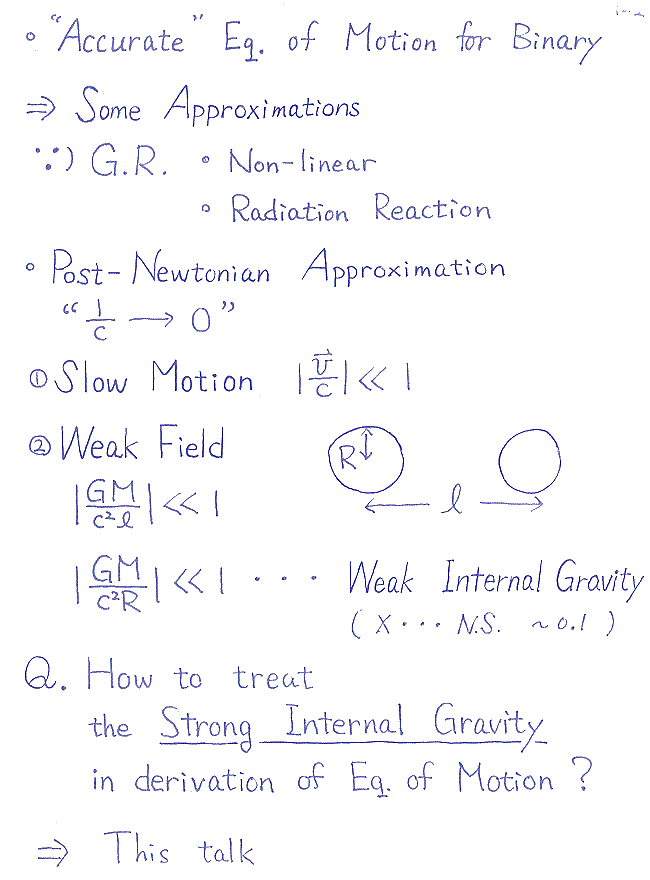 ◦ “Accurate” Eq. of Motion for Binary
⇒ Some Approximations
∵) G.R. ◦ Non-linear
◦ Radiation Reaction
◦ Post-Newtonian Approximation
“ 1/c → 0 ”
① Slow Motion |v⃗/c| ≪ 1
② Weak Field
R
|GM/c²ℓ| ≪ 1
ℓ
|GM/c²R| ≪ 1 ··· Weak Internal Gravity
( X ··· N.S. ~0.1 )
Q. How to treat
the Strong Internal Gravity
in derivation of Eq. of Motion ?
⇒ This talk